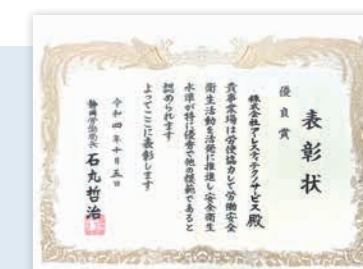 表彰状
優良賞
株式会社アールスティテクノサービス殿
貴事業場は労使協力して労働安全
衛生活動を活発に推進し安全衛生
水準が特に優秀で他の模範であると
認められます
よってここに表彰します
令和四年十月五日
静岡労働局長 石丸哲治